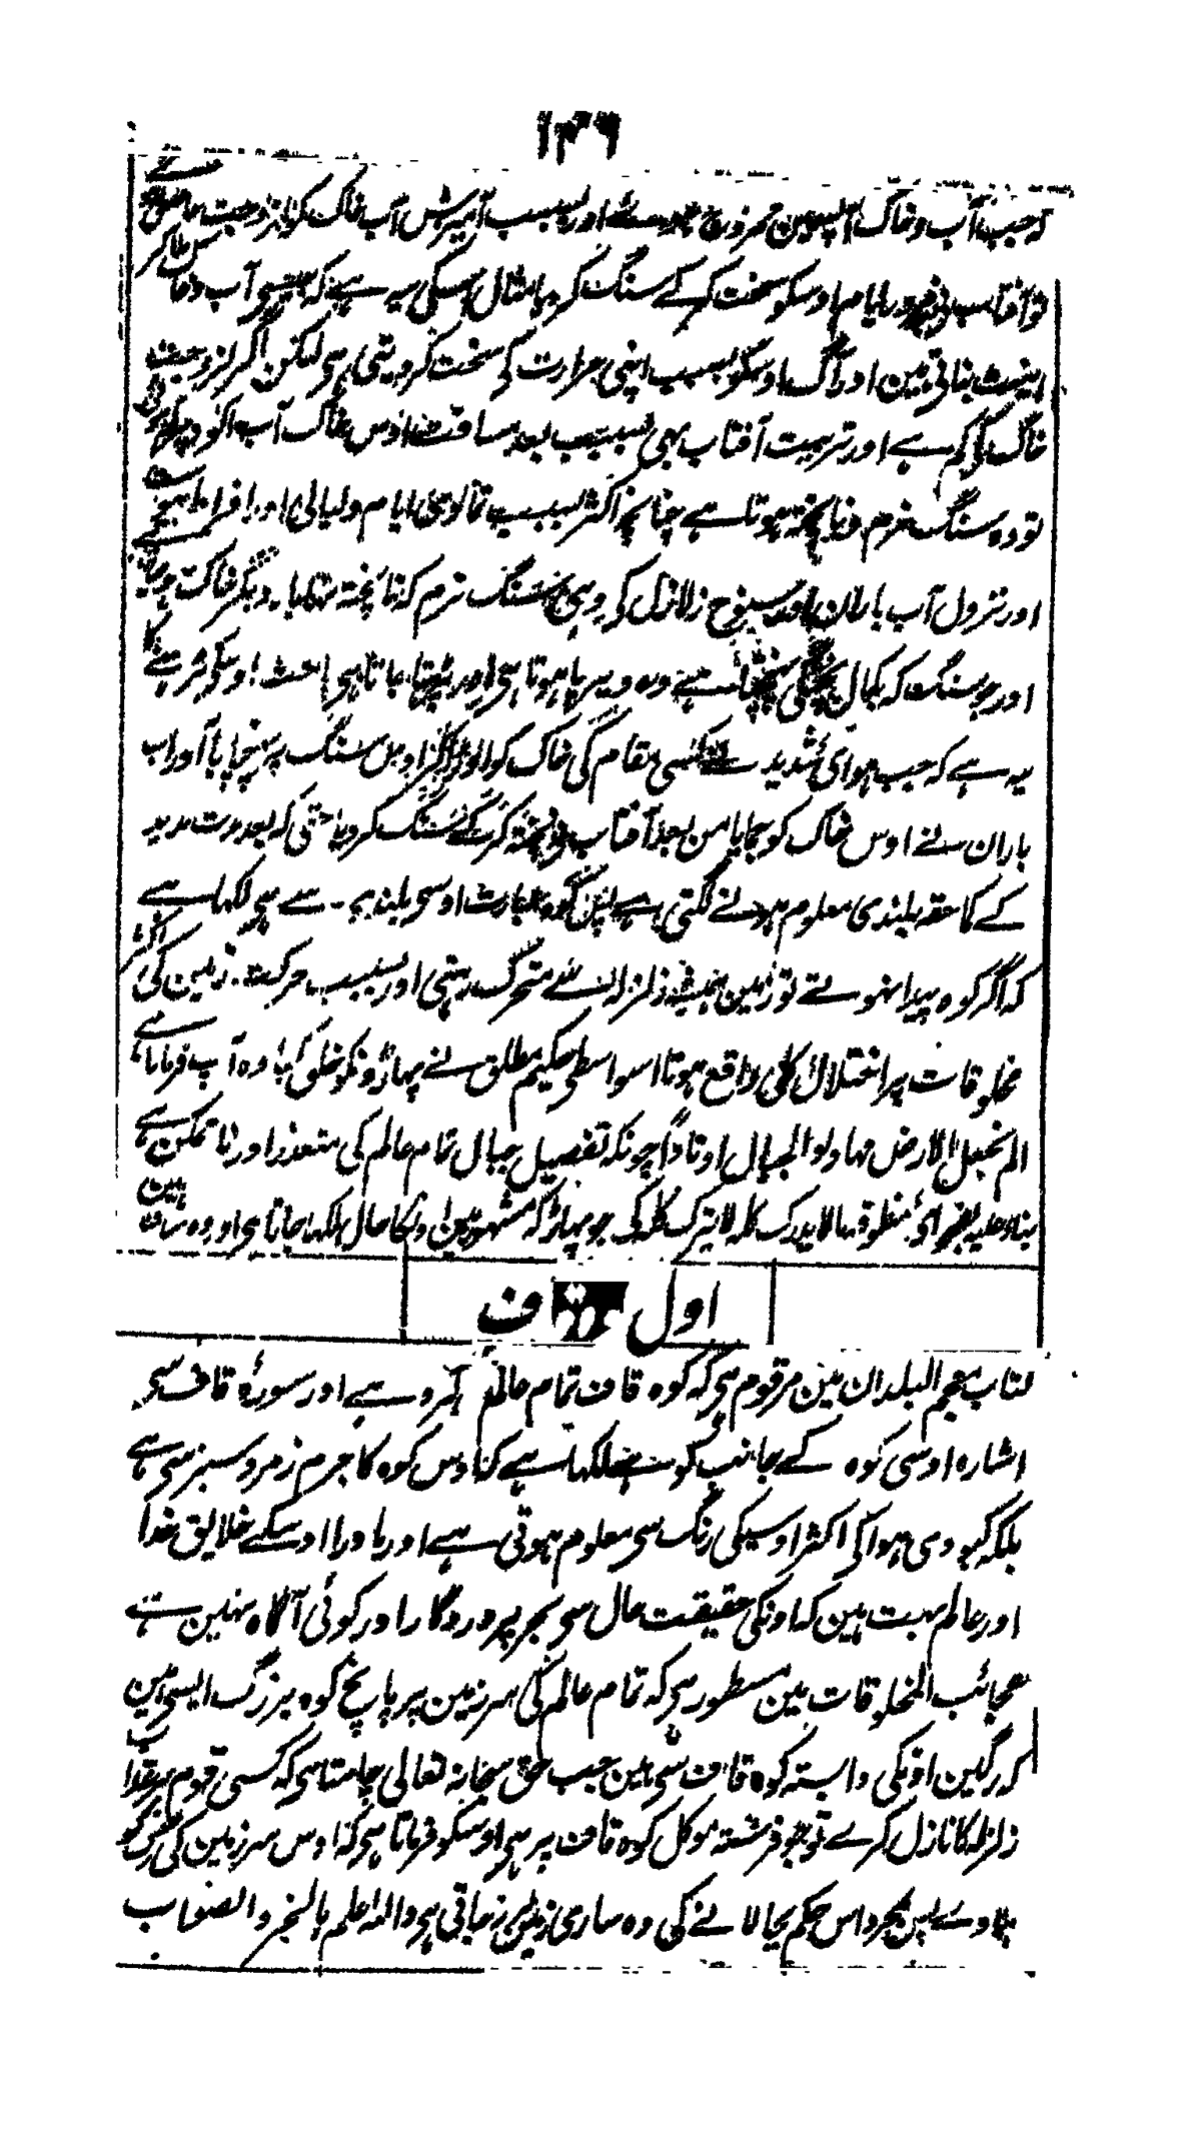 ۱۳۶
کہ جب آب و خاک آپسمین ممزوج ہوئے اور بسبب آمیزش آب خاک کو لزوجت حاصل ہوئے
تو آفتاب نے بمرور ایام اوسکو سخت کرکے سنگ کر دیا مثال اسکی یہ ہے کہ جیسے آب و خاک ملا کر
اینٹ بناتے ہین اور آگ اوسکو بسبب اپنی حرارت کے سخت کر دیتی ہی لیکن اگر لزوجت
خاک کی کم ہے اور تربیت آفتاب بھی بسبب بعد مسافت اوس خاک آب آلود پر
تو وہ سنگ نرم و ناپختہ ہوتا ہے چنانچہ اکثر بسبب ایام و لیالی اور افراط
اور نزول آب باران اور سنوح زلازل کے وہی سنگ نرم کہ ناپختہ تھا بار دیگر خاک ہو جاتا ہے
اور جو سنگ کہ بکمال پختگی پہنچتا ہے وہ دیرپا ہوتا ہی اور بڑھتا جاتا ہی باعث اوسکے
یہ ہے کہ جب ہوای شدید نے کسی مقام کی خاک کو اوڑا کر اوس سنگ پر پہنچایا اور آب
باران نے اوس خاک کو جمایا من بعد آفتاب نے پختہ کرکے سنگ کر دیا حتی کہ بعد مدت مدید
کے کماحقہ بلندی معلوم ہونے لگتی ہے پس کوہ عبارت اوسی بلندی سے ہے لکھا ہے
کہ اگر کوہ پیدا نہوتے تو زمین ہمیشہ زلزلہ سے متحرک رہتی اور بسبب حرکت زمین کی اکثر
مخلوقات پر اختلال کلی واقع ہوتا اسواسطے حکیم مطلق نے پہاڑونکو خلق کیا وہ آپ فرماتا ہے
الم نجعل الارض مہادا والجبال اوتادا چونکہ تفصیل جبال تمام عالم کی متعذر اور ناممکن ہے
بناء علیہ بفحوای منطوقہ مالا یدرک کلہ لا یترک کلہ کی جو پہاڑ کہ مشہور ہین اونکا حال لکھا جاتا ہی اور وہ سات ہین
اول ف
کتاب معجم البلدان مین مرقوم ہی کہ کوہ قاف تمام عالم کے گرد ہے اور سورۂ قاف سی
اشارہ اوسی کوہ کے جانب کو ہے لکھا ہے کہ اوس کوہ کا جرم زمرد سبز سی ہے
بلکہ کبودی ہوا کی اکثر اوسیکی رنگ سی معلوم ہوتی ہے اور ماورا اوسکے خلایق خدا
اور عالم بہت ہین کہ اونکی حقیقت حال سی بجز پروردگار اور کوئی آگاہ نہین ہے
عجائب المخلوقات مین مسطور ہی کہ تمام عالم کی سرزمین پر پانچ کوہ بزرگ ایسی ہین
کہ رگین اونکی وابستہ کوہ قاف سی ہین جب حق سبحانہ تعالی چاہتا ہی کہ کسی قوم پر عذاب
زلزلہ کا نازل کرے تو جو فرشتہ موکل کوہ قاف پر ہی اوسکو فرماتا ہی کہ اوس سرزمین کی رگ کو
ہلاوے پس بمجرد اس حکم بجا لانے کی وہ ساری زمین لرز جاتی ہی واللہ اعلم بالخیر والصواب